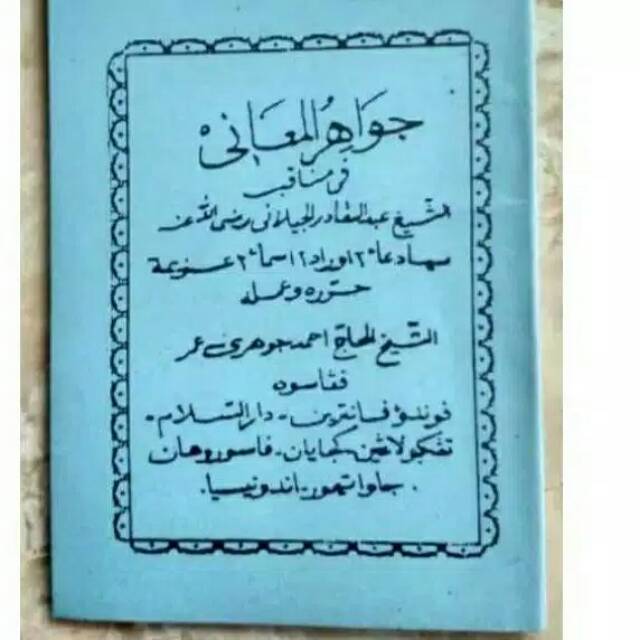 جواهر المعاني
في مناقب
الشيخ عبد القادر الجيلاني رضي الله عنه
دعاء٢ اوراد٢ اسماء٢ عزيمة
حرره وعمله
الشيخ الحاج احمد جوهري عمر
فغاسوه
فوندؤ فسانترين - دار السلام -
تڠكولاڠين كجايان - فاسوروهان
. جاوا تيمور - اندونيسيا .